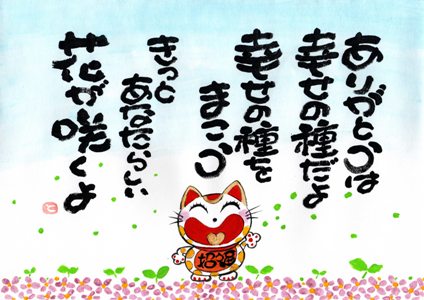 ありがとうは
幸せの種だよ
幸せの種を
まこう
きっと
あなたらしい
花が咲くよ
招福
と